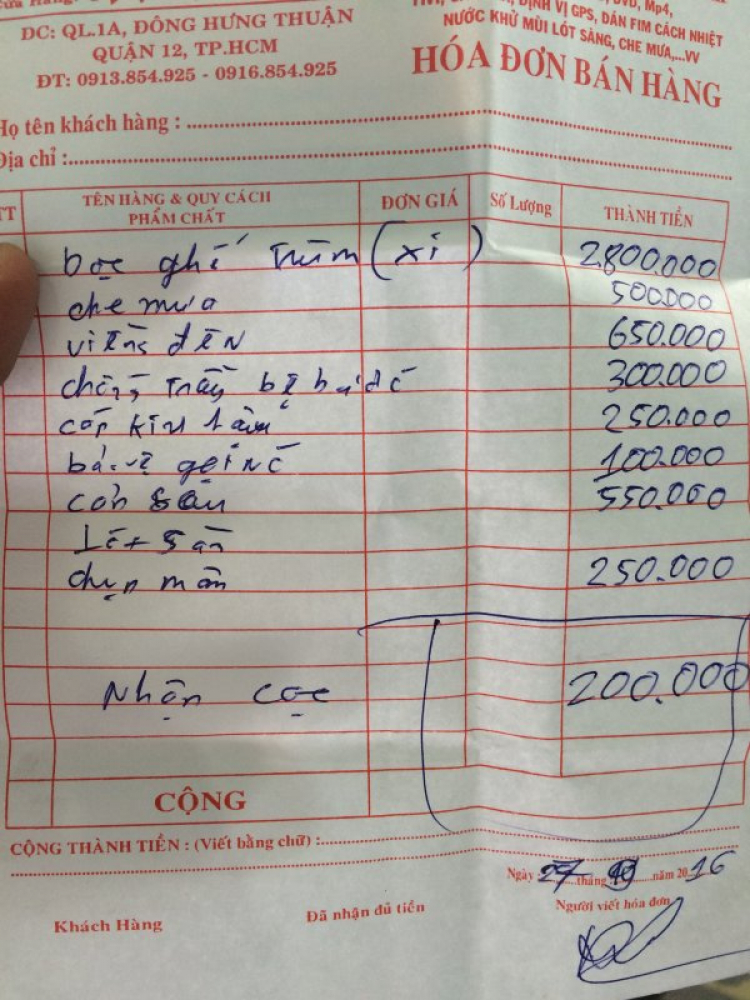 ĐỊNH VỊ GPS, DÁN FIM CÁCH NHIỆT
NƯỚC KHỬ MÙI LÓT SÀNG, CHE MƯA,...VV
DC: QL.1A, ĐÔNG HƯNG THUẬN
QUẬN 12, TP.HCM
ĐT: 0913.854.925 - 0916.854.925
HÓA ĐƠN BÁN HÀNG
Họ tên khách hàng :
Địa chỉ :
TT TÊN HÀNG & QUY CÁCH PHẨM CHẤT ĐƠN GIÁ Số Lượng THÀNH TIỀN
bọc ghế trùm (xi) 2.800.000
che mưa 500.000
viềng đèn 650.000
chống trầy bệ 300.000
cốp 250.000
100.000
550.000
Lót sàn
chụp mâm 250.000
Nhận cọc 200.000
CỘNG
CỘNG THÀNH TIỀN : (Viết bằng chữ) :
Ngày 27 tháng năm 2016
Khách Hàng Đã nhận đủ tiền Người viết hóa đơn